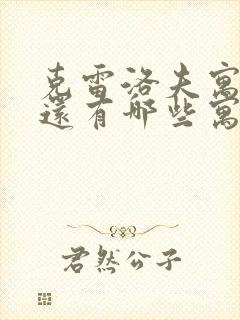 克雷洛夫寓
還有哪些寓
君然公子